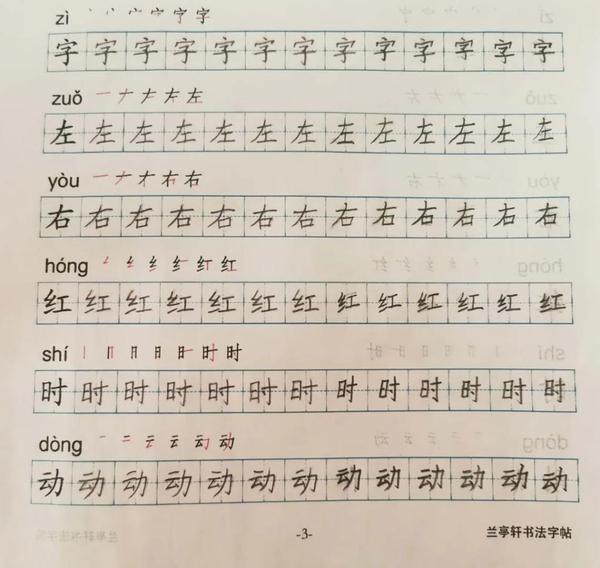 zì 字
字 字 字 字 字 字 字 字 字 字 字 字 字
zuǒ 一 ナ 左
左 左 左 左 左 左 左 左 左 左 左 左 左
yòu 一 ナ 右
右 右 右 右 右 右 右 右 右 右 右 右 右
hóng 纟 红
红 红 红 红 红 红 红 红 红 红 红 红 红
shí 丨 日 时
时 时 时 时 时 时 时 时 时 时 时 时 时
dòng 一 二 云 动
动 动 动 动 动 动 动 动 动 动 动 动 动
-3- 兰亭轩书法字帖